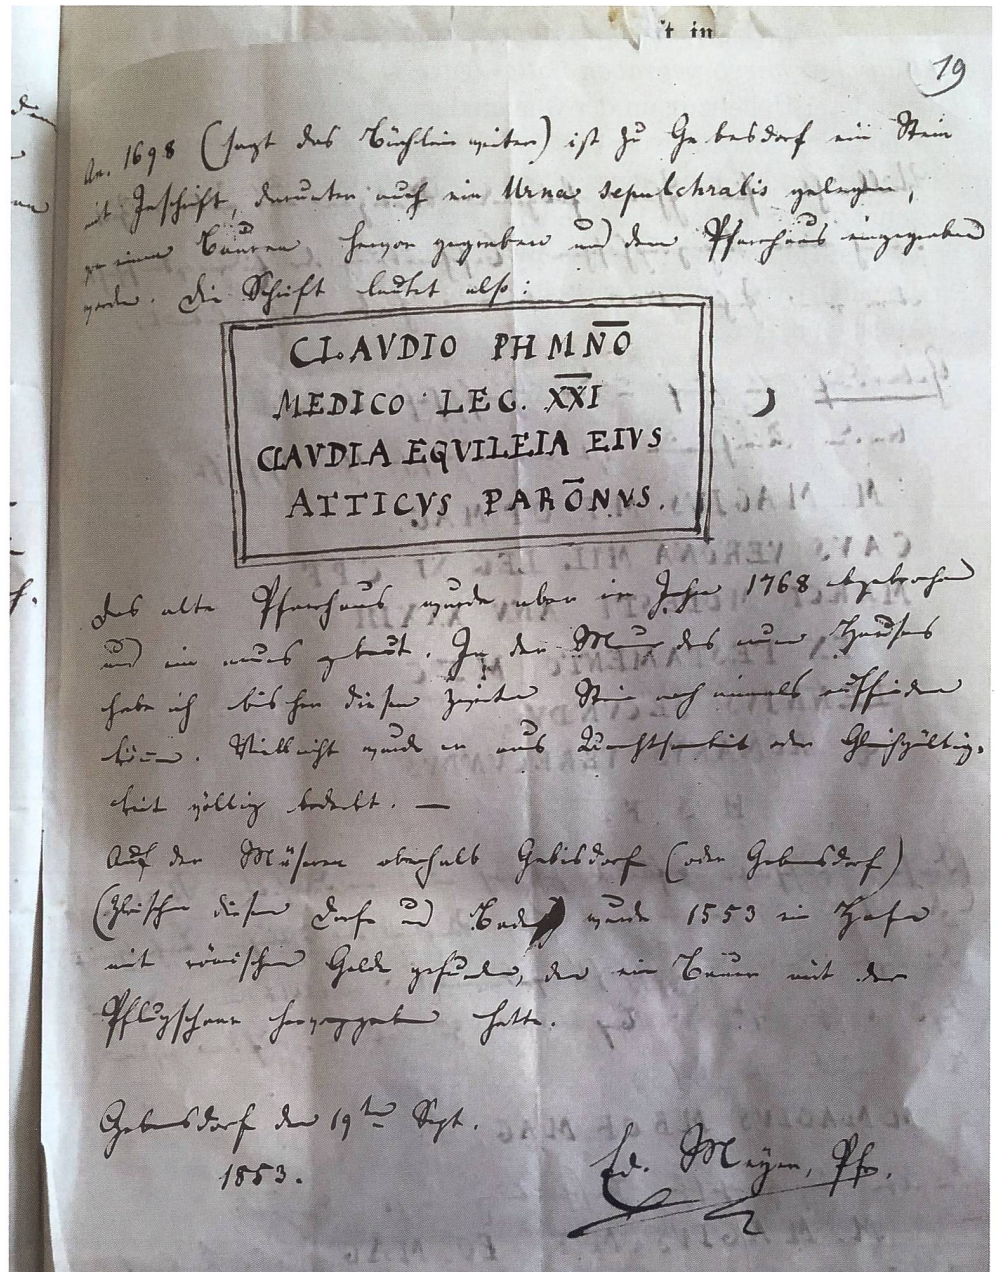 19
An. 1698 (sagt das Büchlein weiter) ist zu Gebesdorf ein Stein
mit Inschrift, darunter auch ein Urna sepulchralis gelegen,
von einem Bauren hervor gegraben und dem Pfarrhaus eingegraben
worden. Die Schrift lautet also:
CLAVDIO PHMN̅O̅
MEDICO LEG. X̅X̅I
CLAVDIA EQVILEIA EIVS
ATTICVS PARO̅NVS.
Das alte Pfarrhaus wurde aber im Jahr 1768 abgebrochen
und ein neues gebaut. In der Mauer des neuen Hauses
habe ich bisher diesen zweiten Stein noch niemals auffinden
können. Vielleicht wurde er aus Unachtsamkeit oder Gleichgültig-
keit völlig bedeckt. —
Auf der oberhalb Gebisdorf (oder Gebensdorf)
(Zwischen diesem Dorfe und Baden wurde 1553 ein Hafen
mit römischem Gelde gefunden, den ein Bauer mit der
Pflugschaar hervorgegraben hatte.
Gebensdorf den 19ten Sept.
1853.
Ed. Meyer, Pfr.